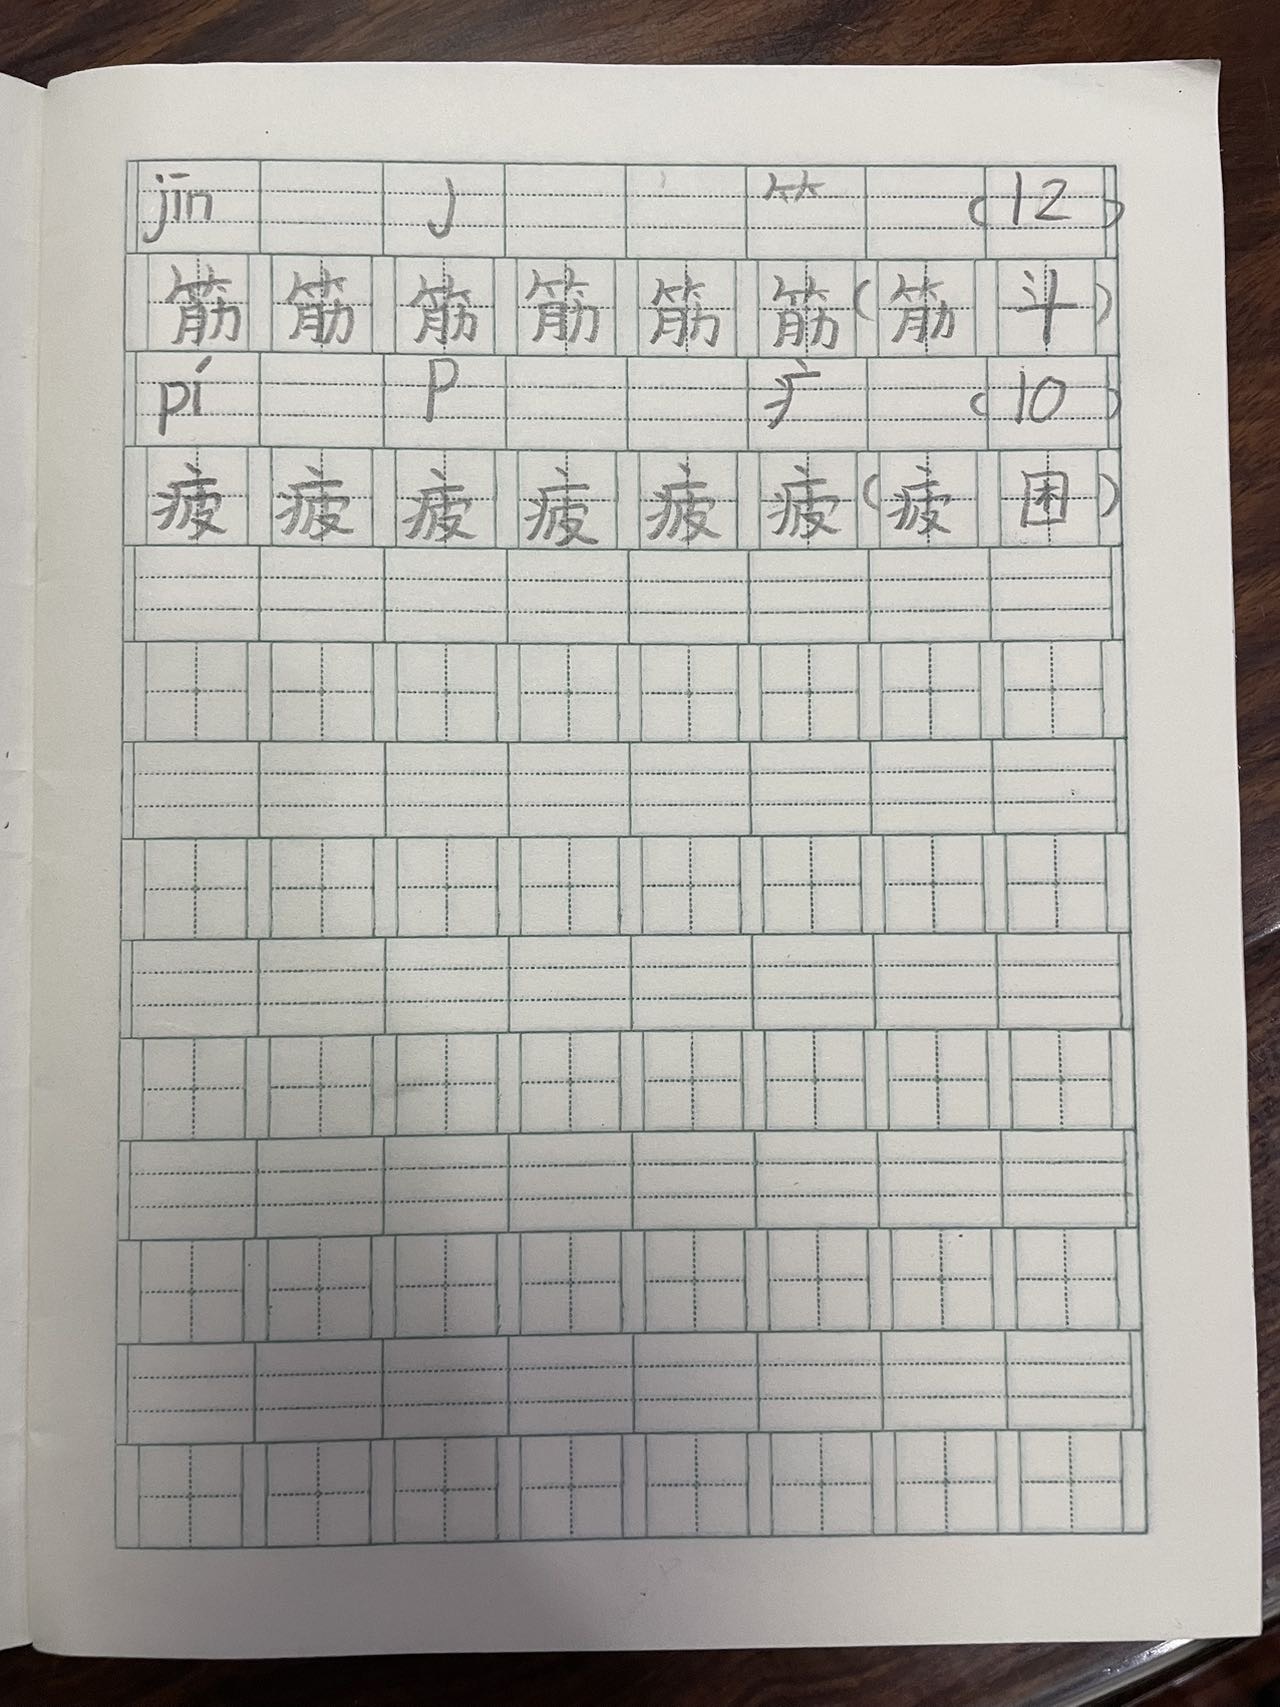 jīn J ⺮ (12)
筋 筋 筋 筋 筋 筋 (筋 斗)
pí P 疒 (10)
疲 疲 疲 疲 疲 疲 (疲 困)